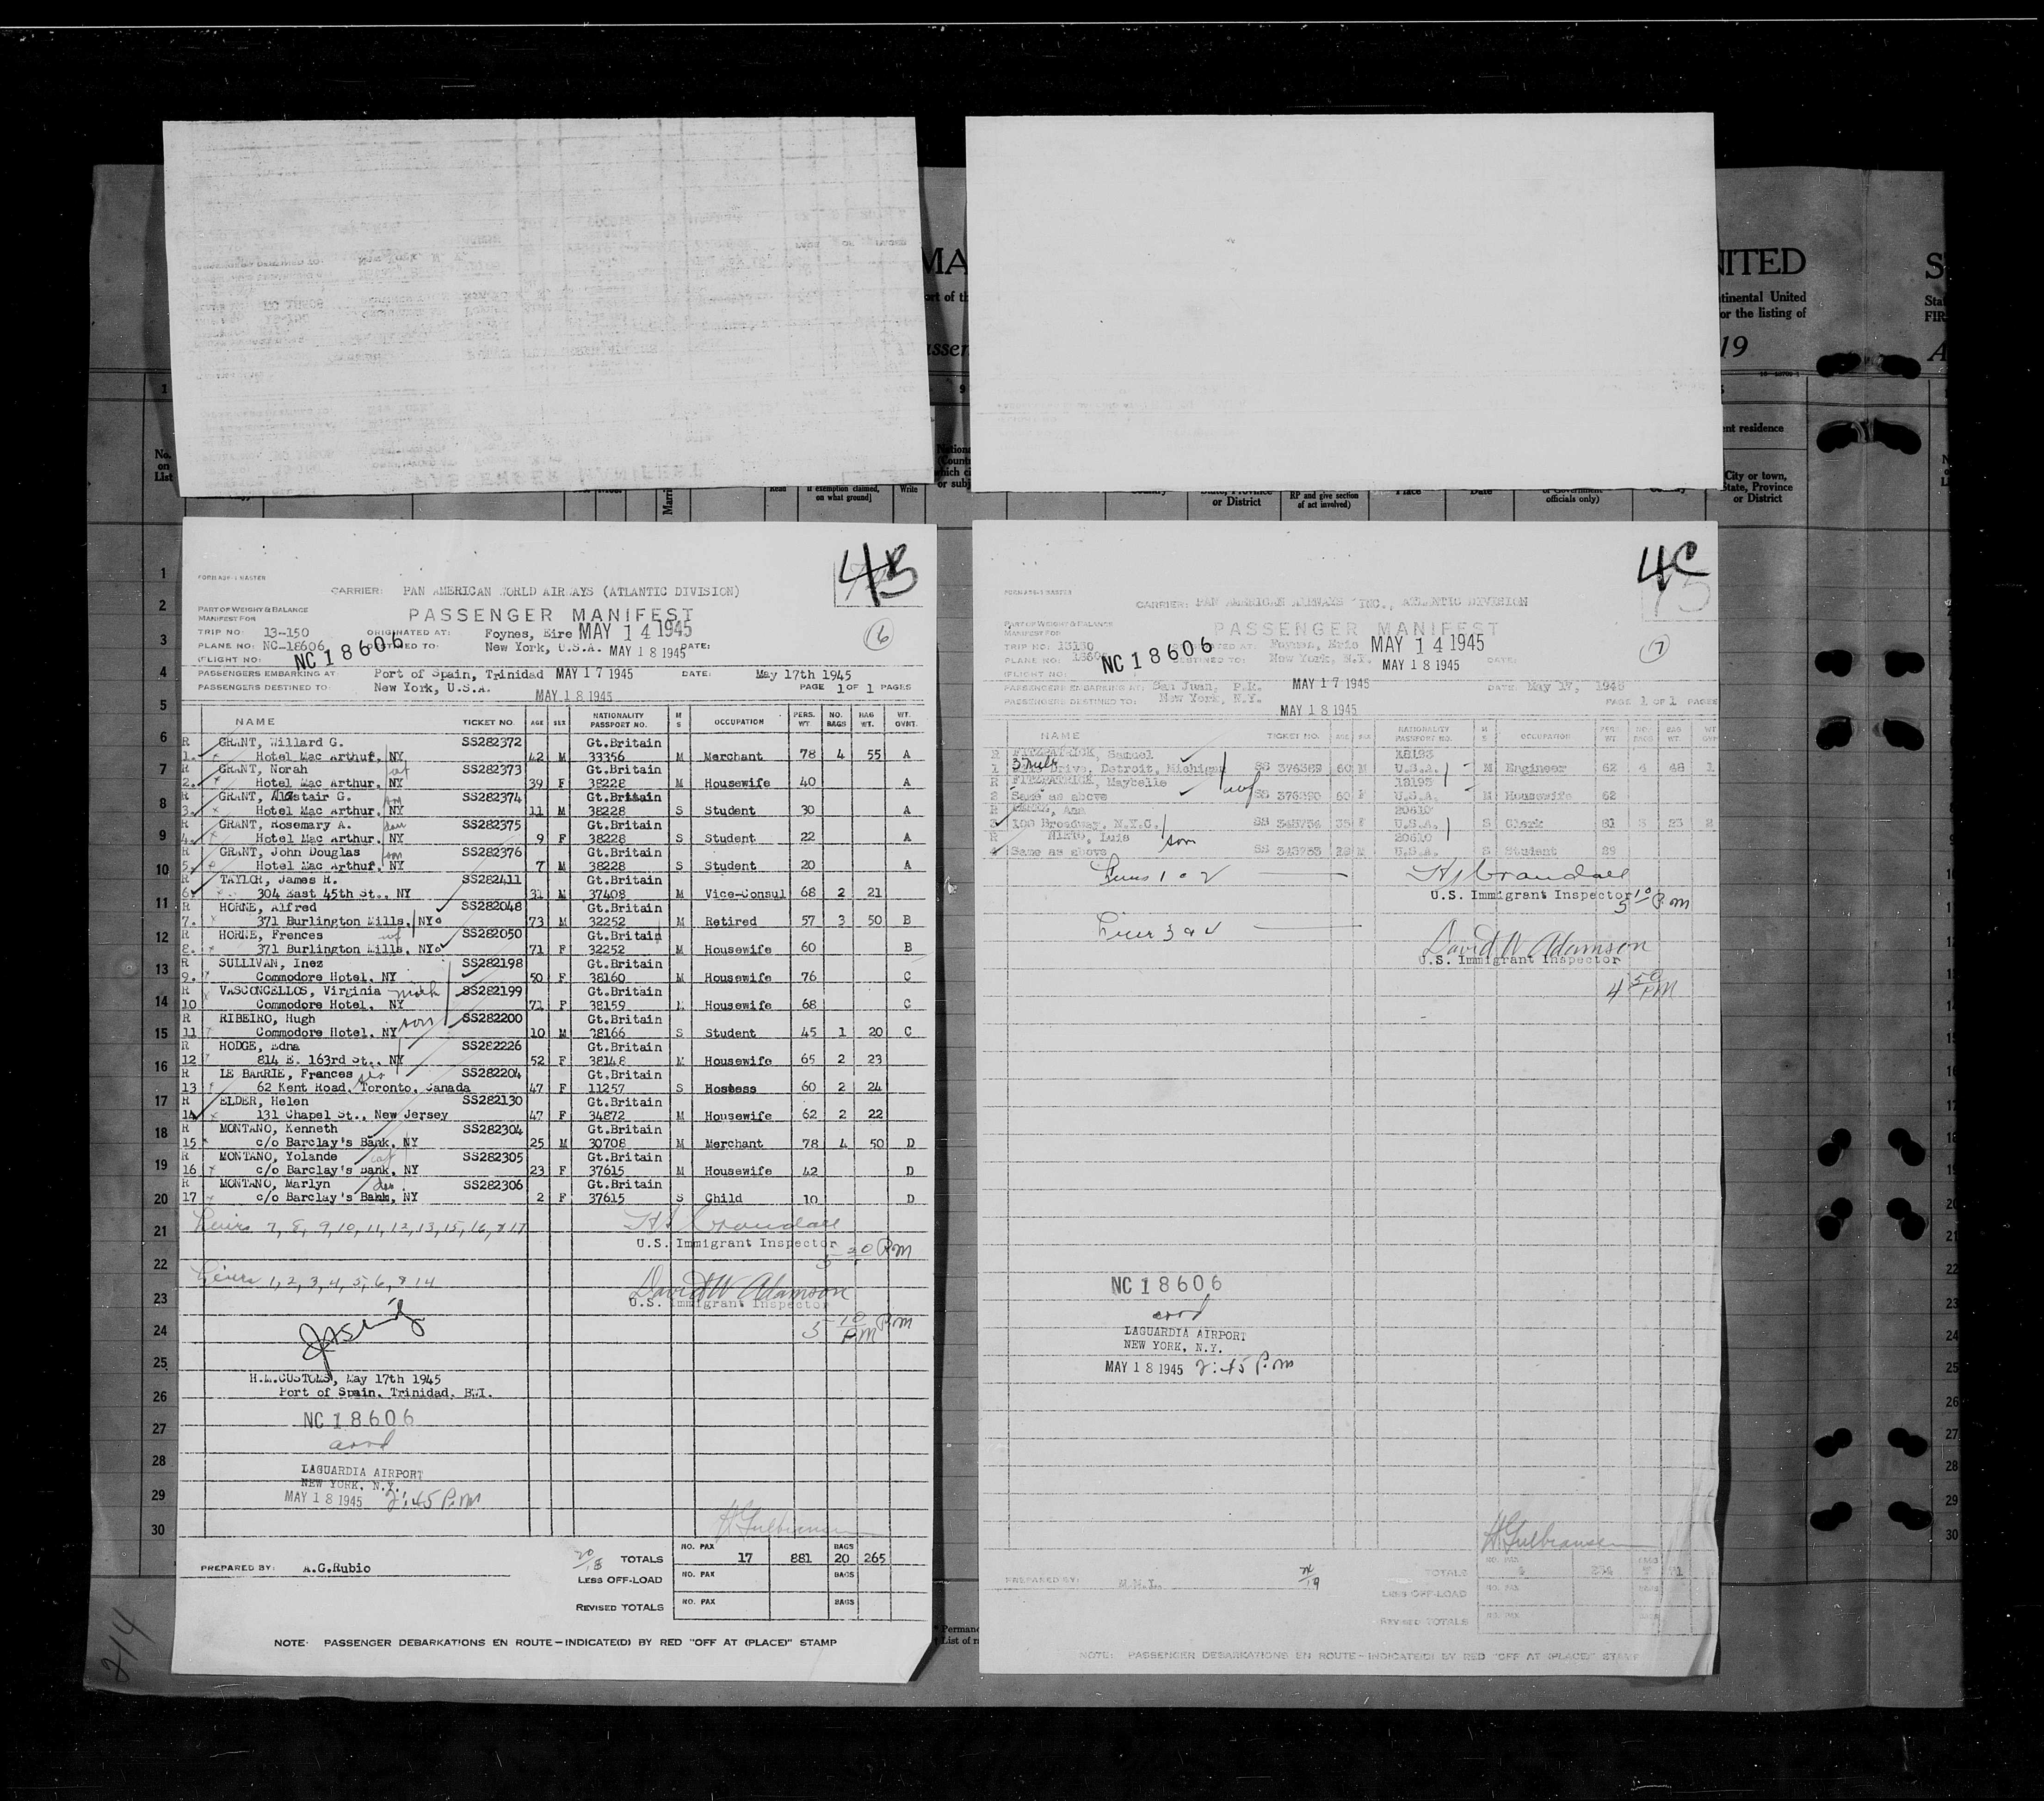 MA
NITED
S
ort of th
tinental United
or the listing of
Stat
FIR
assen
19
A
1
9
No.
on
List
ent residence
City or town,
State, Province
or District
if exemption claimed,
on what ground]
Read
Write
Country
State, Province
or District
RP and give section
of act involved)
Place
Date
of Government
officials only)
4B
FORM ADF-1 MASTER
CARRIER: PAN AMERICAN WORLD AIRWAYS (ATLANTIC DIVISION)
PART OF WEIGHT & BALANCE
MANIFEST FOR
PASSENGER MANIFEST
TRIP NO: 13-150 ORIGINATED AT: Foynes, Eire MAY 14 1945
16
PLANE NO: NC-18606 DESTINED TO: New York, U.S.A. MAY 18 1945 DATE:
FLIGHT NO: NC18606
PASSENGERS EMBARKING AT: Port of Spain, Trinidad MAY 17 1945 DATE: May 17th 1945
PASSENGERS DESTINED TO: New York, U.S.A. MAY 18 1945 PAGE 1 OF 1 PAGES
NAME TICKET NO. AGE SEX NATIONALITY PASSPORT NO. M S OCCUPATION PERS. WT NO. BAGS BAG WT. WT. OVNT.
R GRANT, Willard G. SS282372 Gt.Britain
1. Hotel Mac Arthur, NY 42 M 33356 M Merchant 78 4 55 A
R GRANT, Norah SS282373 Gt.Britain
2. Hotel Mac Arthur, NY 39 F 38228 M Housewife 40 A
R GRANT, Alastair G. SS282374 Gt.Britain
3. Hotel Mac Arthur, NY 11 M 38228 S Student 30 A
R GRANT, Rosemary A. SS282375 Gt.Britain
4. Hotel Mac Arthur, NY 9 F 38228 S Student 22 A
R GRANT, John Douglas son SS282376 Gt.Britain
5. Hotel Mac Arthur, NY 7 M 38228 S Student 20 A
R TAYLOR, James R. SS282411 Gt.Britain
6. 304 East 45th St., NY 31 M 37408 M Vice-Consul 68 2 21
R HORNE, Alfred SS282048 Gt.Britain
7. 371 Burlington Mills, NYo 73 M 32252 M Retired 57 3 50 B
R HORNE, Frences wf SS282050 Gt.Britain
8. 371 Burlington Mills, NYo 71 F 32252 M Housewife 60 B
R SULLIVAN, Inez SS282198 Gt.Britain
9. Commodore Hotel, NY 50 F 38160 M Housewife 76 C
R VASCONCELLOS, Virginia moth SS282199 Gt.Britain
10 Commodore Hotel, NY 71 F 38159 M Housewife 68 C
R RIBEIRO, Hugh son SS282200 Gt.Britain
11 Commodore Hotel, NY 10 M 38166 S Student 45 1 20 C
R HODGE, Edna SS282226 Gt.Britain
12 814 E. 163rd St., NY 52 F 38148 M Housewife 65 2 23
R LE BARRIE, Frances sis SS282204 Gt.Britain
13 62 Kent Road, Toronto, Canada 47 F 11257 S Hostess 60 2 24
R ELDER, Helen SS282130 Gt.Britain
14 131 Chapel St., New Jersey 47 F 34872 M Housewife 62 2 22
R MONTANO, Kenneth SS282304 Gt.Britain
15 c/o Barclay's Bank, NY 25 M 30708 M Merchant 78 4 50 D
R MONTANO, Yolande SS282305 Gt.Britain
16 c/o Barclay's Bank, NY 23 F 37615 M Housewife 42 D
R MONTANO, Marlyn dau SS282306 Gt.Britain
17 c/o Barclay's Bank, NY 2 F 37615 S Child 10 D
Lines 7, 8, 9, 10, 11, 12, 13, 15, 16, & 17 H Crandall
U.S. Immigrant Inspector
5 20 P.m
Lines 1, 2, 3, 4, 5, 6, & 14 David W Adamson
U.S. Immigrant Inspector
5 10 PM P.m
H.M.CUSTOMS, May 17th 1945
Port of Spain, Trinidad, BWI.
NC18606
arrd
LAGUARDIA AIRPORT
NEW YORK, N.Y.
MAY 18 1945 2:45 P.m
H Gulbransen
PREPARED BY: A.G.Rubio
20/18 TOTALS NO. PAX 17 881 BAGS 20 265
LESS OFF-LOAD NO. PAX BAGS
REVISED TOTALS NO. PAX BAGS
NOTE: PASSENGER DEBARKATIONS EN ROUTE—INDICATE(D) BY RED "OFF AT (PLACE)" STAMP
4C
CARRIER: PAN AMERICAN AIRWAYS INC., ATLANTIC DIVISION
PART OF WEIGHT & BALANCE
MANIFEST FOR
PASSENGER MANIFEST
TRIP NO: 13150 ORIGINATED AT: Foynes, Erie MAY 14 1945
17
PLANE NO: 18606 NC18606 DESTINED TO: New York, N.Y. MAY 18 1945 DATE:
FLIGHT NO:
PASSENGERS EMBARKING AT: San Juan, P.R. MAY 17 1945 DATE: May 17, 1945
PASSENGERS DESTINED TO: New York, N.Y. MAY 18 1945 PAGE 1 OF 1 PAGES
NAME TICKET NO. AGE SEX NATIONALITY PASSPORT NO. M S OCCUPATION PERS WT NO. BAGS BAG WT. WT OVNT
R FITZPATRICK, Samuel 12193
1 Drive, Detroit, Michigan SS 376389 60 M U.S.A. M Engineer 62 4 48 1
R FITZPATRICK, Maybelle wf 12193
2 Same as above SS 376390 60 F U.S.A. M Housewife 62
R Ana 20610
3 190 Broadway, N.Y.C. SS 343754 35 F U.S.A. S Clerk 81 3 23 2
R NIETO, Luis son 20610
4 Same as above SS 343753 M U.S.A. S Student 29
Lines 1 & 2 H Crandall
U.S. Immigrant Inspector 5 10 P m
Lines 3 & 4 David W Adamson
U.S. Immigrant Inspector
4 50 PM
NC18606
arrd
LAGUARDIA AIRPORT
NEW YORK, N.Y.
MAY 18 1945 2:45 P.m
H Gulbransen
PREPARED BY: TOTALS NO. PAX 4 234 BAGS 7 71
LESS OFF-LOAD NO. PAX BAGS
REVISED TOTALS NO. PAX BAGS
NOTE: PASSENGER DEBARKATIONS EN ROUTE—INDICATE(D) BY RED "OFF AT (PLACE)" STAMP
1
2
3
4
5
6
7
8
9
10
11
12
13
14
15
16
17
18
19
20
21
22
23
24
25
26
27
28
29
30
Permane
List of r
214